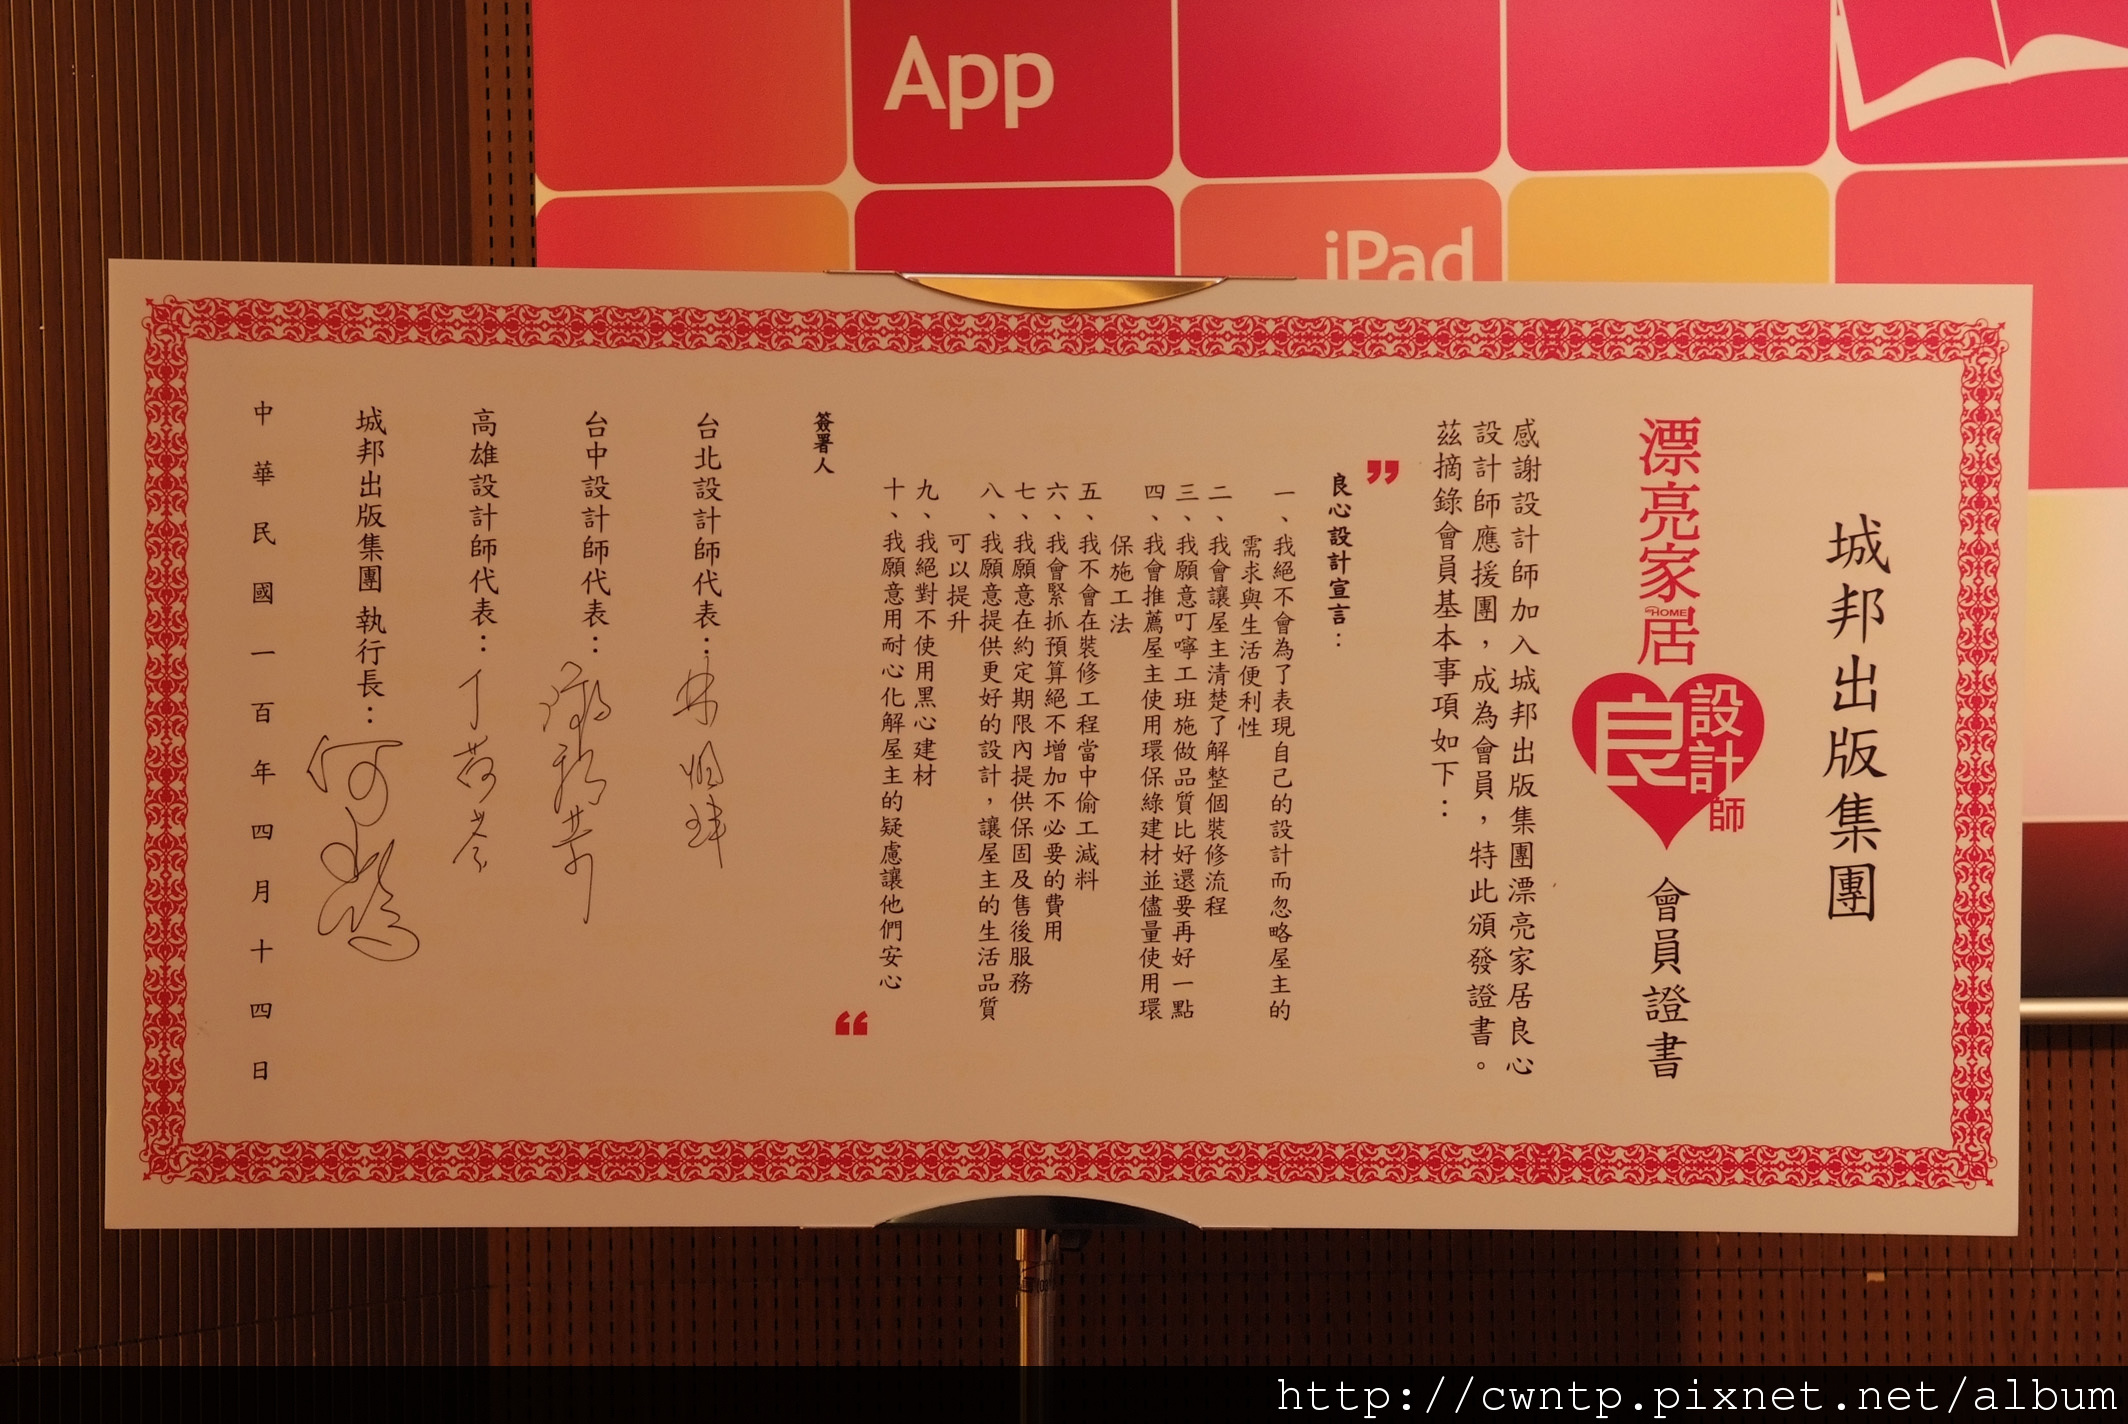 App
iPad
城邦出版集團
漂亮家居
HOME
良 設計師
會員證書
感謝設計師加入城邦出版集團漂亮家居良心
設計師應援團，成為會員，特此頒發證書。
茲摘錄會員基本事項如下：
”
良心設計宣言：
一、我絕不會為了表現自己的設計而忽略屋主的
需求與生活便利性
二、我會讓屋主清楚了解整個裝修流程
三、我願意叮嚀工班施做品質比好還要再好一點
四、我會推薦屋主使用環保綠建材並儘量使用環
保施工法
五、我不會在裝修工程當中偷工減料
六、我會緊抓預算絕不增加不必要的費用
七、我願意在約定期限內提供保固及售後服務
八、我願意提供更好的設計，讓屋主的生活品質
可以提升
九、我絕對不使用黑心建材
十、我願意用耐心化解屋主的疑慮讓他們安心
“
簽署人
台北設計師代表：
台中設計師代表：
高雄設計師代表：
城邦出版集團 執行長：
中華民國一百年四月十四日
http://cwntp.pixnet.net/album